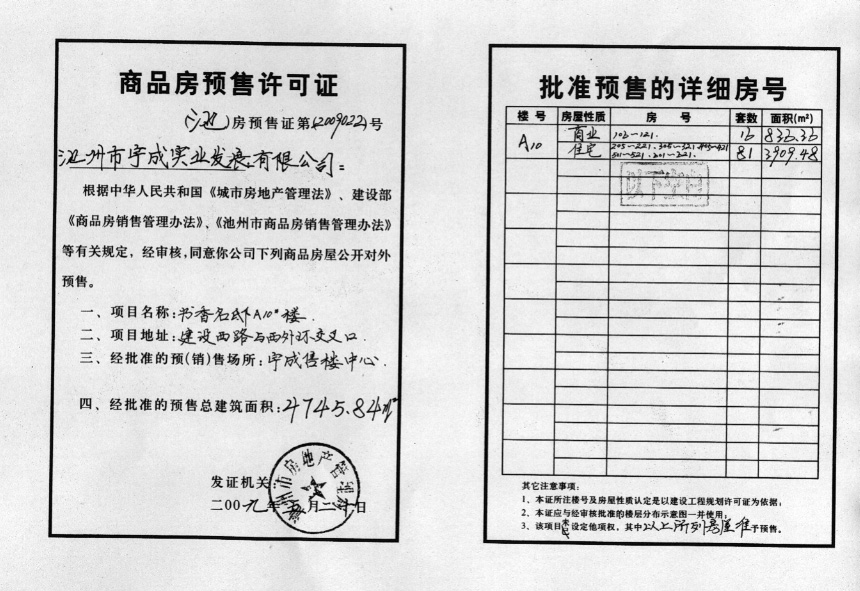 商品房预售许可证
(池)房预售证第(2009022)号
池州市宇成实业发展有限公司：
根据中华人民共和国《城市房地产管理法》、建设部
《商品房销售管理办法》、《池州市商品房销售管理办法》
等有关规定，经审核，同意你公司下列商品房屋公开对外
预售。
一、项目名称：书香名邸A10#楼.
二、项目地址：建设西路与西外环交叉口.
三、经批准的预(销)售场所：宇成售楼中心.
四、经批准的预售总建筑面积：4745.84㎡
发证机关：
二00九年 月二十日
池州市房地产管理
批准预售的详细房号
楼 号 房屋性质 房 号 套数 面积(m²)
A10 商业 106~121. 16 836.36
住宅 205~221、305~321、405~421 81 3909.48
501~521、
以下空白
其它注意事项：
1、本证所注楼号及房屋性质认定是以建设工程规划许可证为依据；
2、本证应与经审核批准的楼层分布示意图一并使用；
3、该项目未设定他项权，其中以上所列房屋准予预售。